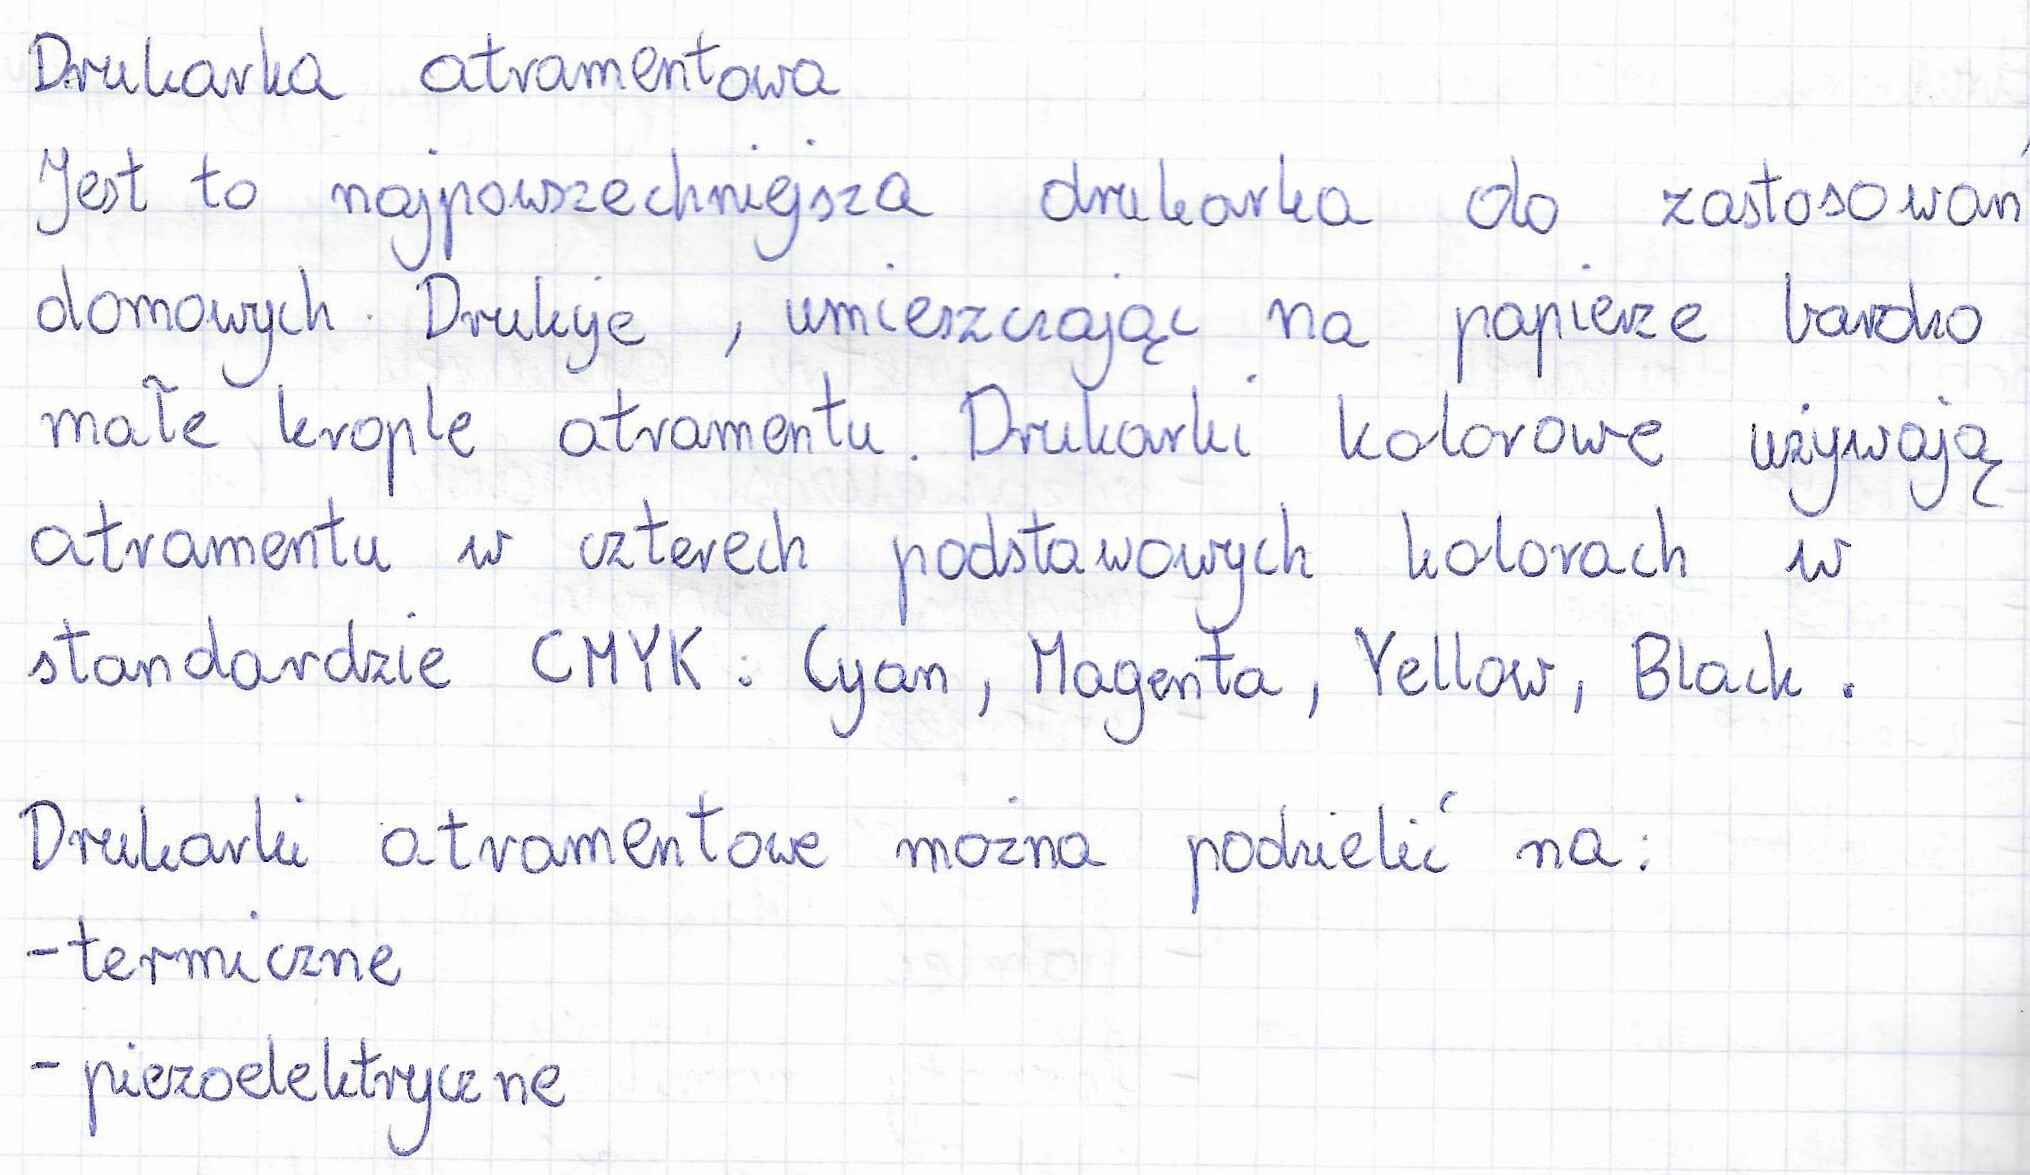 Drukarka atramentowa
Jest to najpowszechniejsza drukarka do zastosowań
domowych. Drukuje, umieszczając na papierze bardzo
małe krople atramentu. Drukarki kolorowe używają
atramentu w czterech podstawowych kolorach w
standardzie CMYK: Cyan, Magenta, Yellow, Black.
Drukarki atramentowe można podzielić na:
- termiczne
- piezoelektryczne